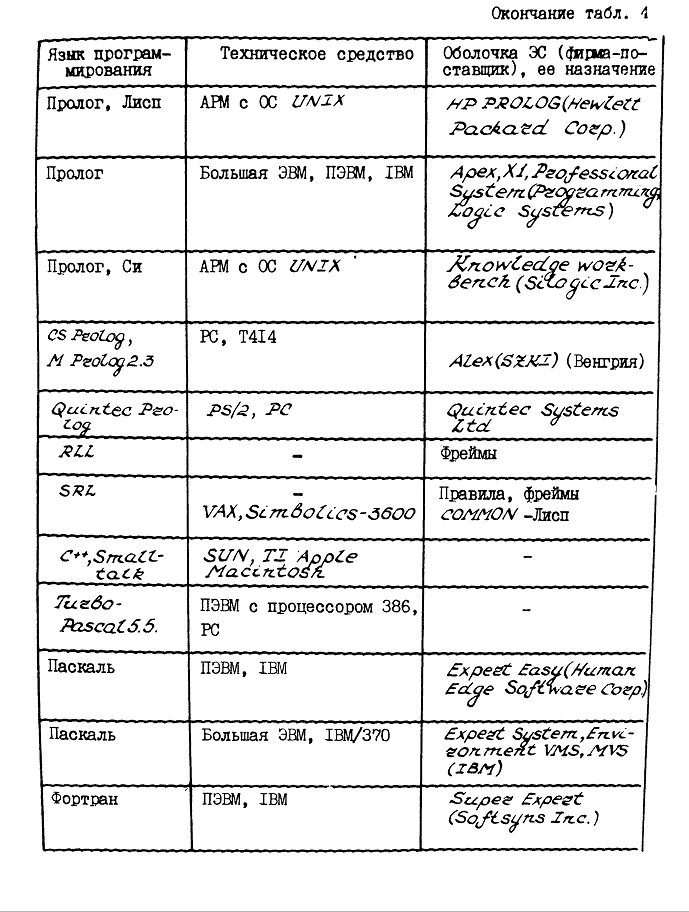 Окончание табл. 4
Язык програм-
мирования
Техническое средство
Оболочка ЭС (фирма-по-
ставщик), ее назначение
Пролог, Лисп
АРМ с ОС UNIX
HP PROLOG (Hewlett
Packard Corp.)
Пролог
Большая ЭВМ, ПЭВМ, IBM
Apex, X1, Professional
System (Programming,
Logic Systems)
Пролог, Си
АРМ с ОС UNIX
Knowledge work-
bench (Silogic Inc.)
CS Prolog,
M Prolog 2.3
PC, T414
Alex (SZKI) (Венгрия)
Quintec Pro-
log
PS/2, PC
Quintec Systems
Ltd
RLL
–
Фреймы
SRL
–
VAX, Simbolics-3600
Правила, фреймы
COMMON -Лисп
C++, Small-
talk
SUN, TI Apple
Macintosh
–
Turbo-
Pascal 5.5.
ПЭВМ с процессором 386,
PC
–
Паскаль
ПЭВМ, IBM
Expert Easy (Human
Edge Software Corp)
Паскаль
Большая ЭВМ, IBM/370
Expert System, Envi-
ronment VMS, MVS
(IBM)
Фортран
ПЭВМ, IBM
Super Expert
(Softsyns Inc.)